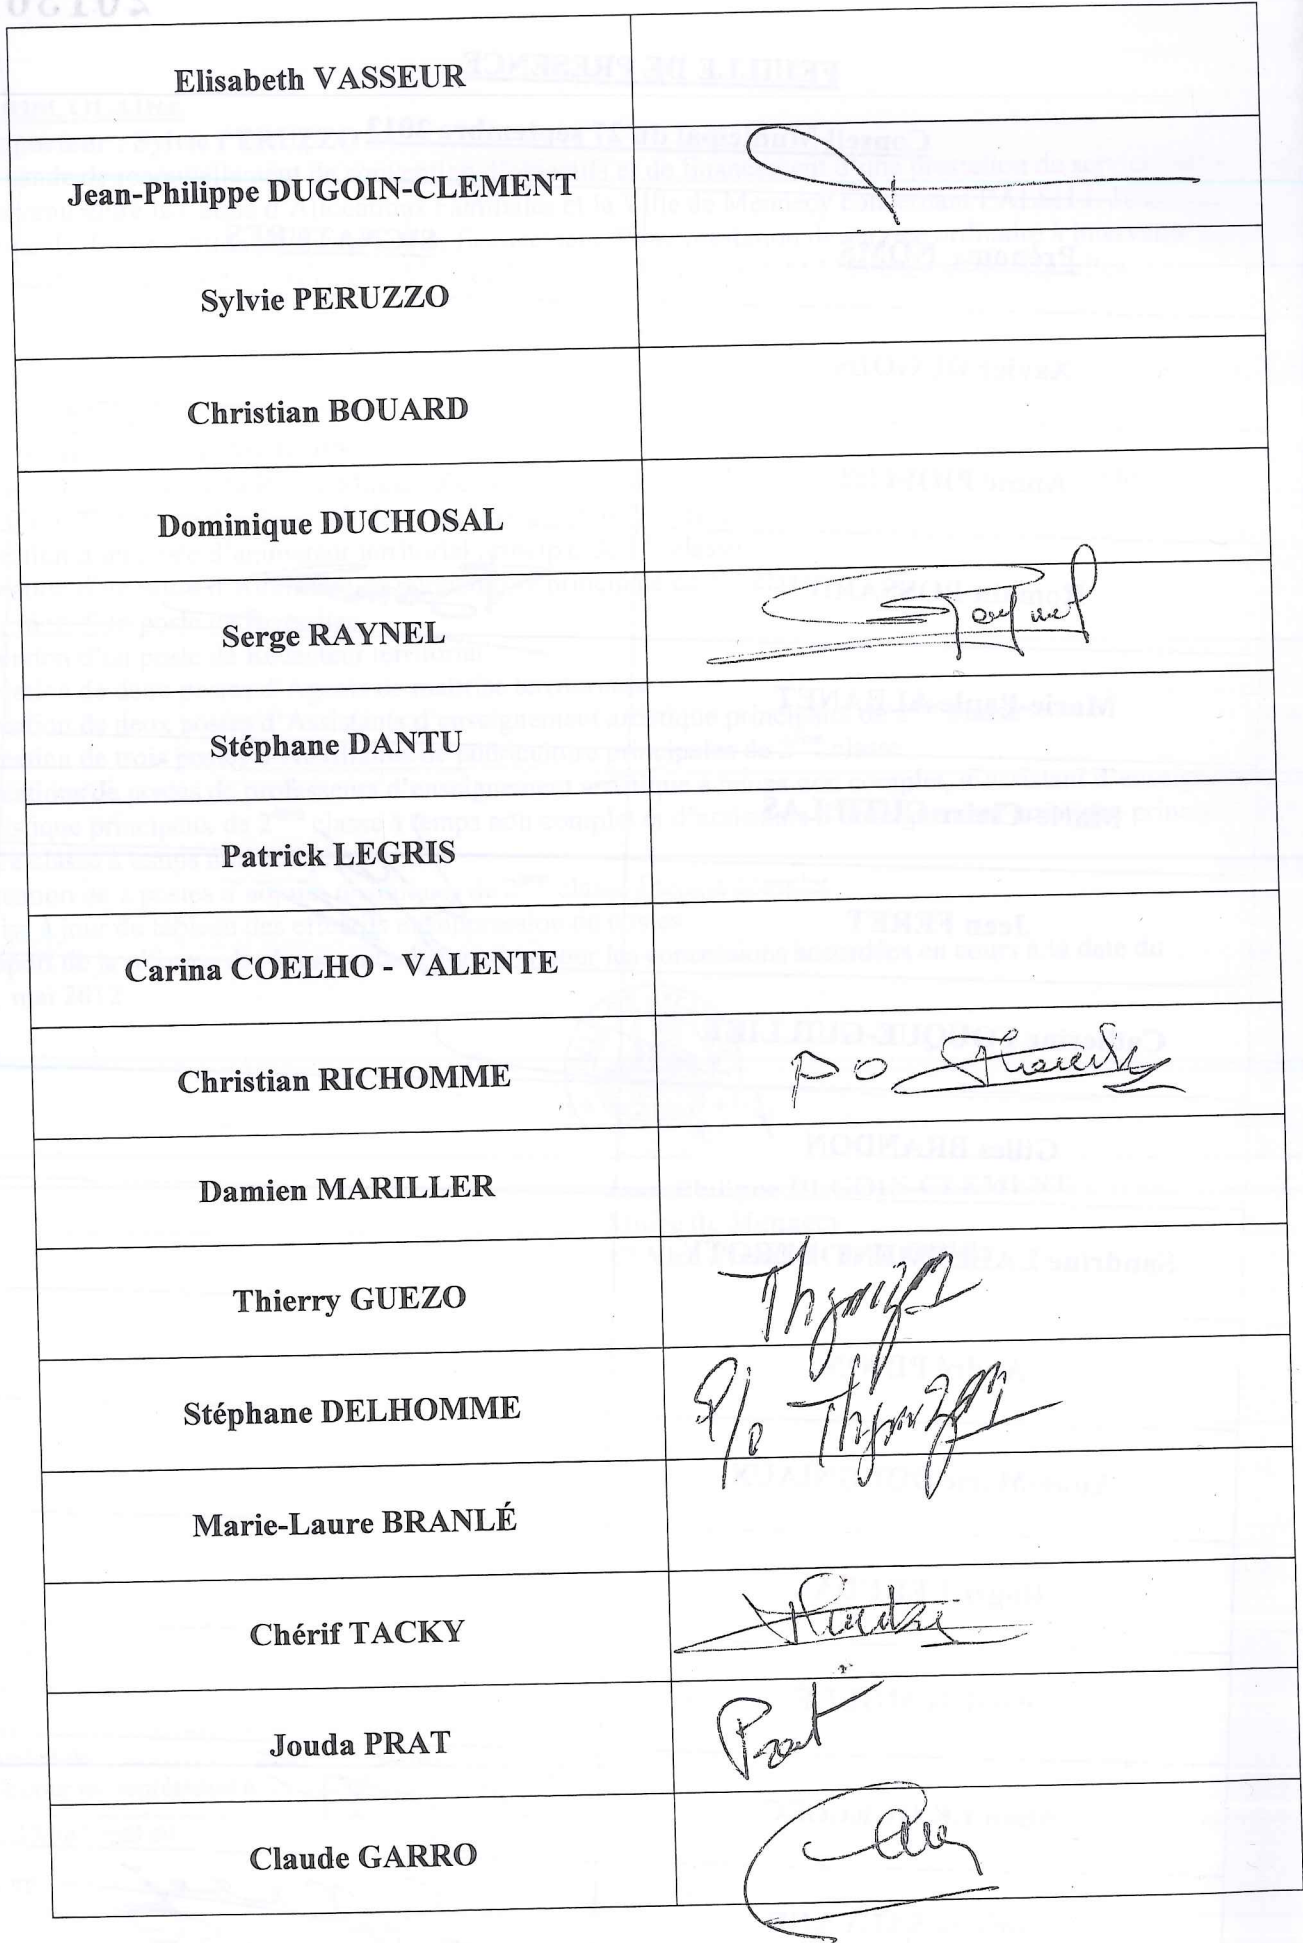 Elisabeth VASSEUR
Jean-Philippe DUGOIN-CLEMENT
Sylvie PERUZZO
Christian BOUARD
Dominique DUCHOSAL
Serge RAYNEL
Raynel
Stéphane DANTU
Patrick LEGRIS
Carina COELHO - VALENTE
Christian RICHOMME
PO
Damien MARILLER
Thierry GUEZO
Stéphane DELHOMME
P/o
Marie-Laure BRANLÉ
Chérif TACKY
Jouda PRAT
Prat
Claude GARRO